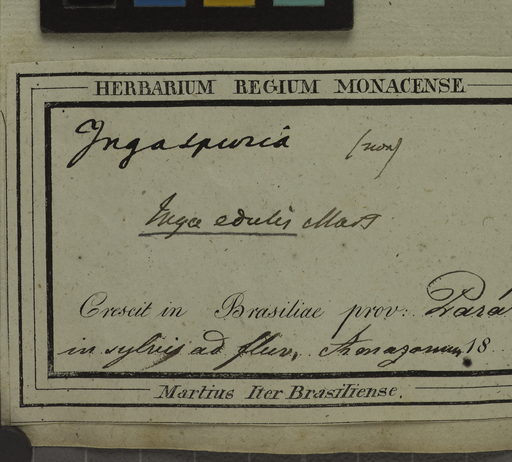 HERBARIUM REGIUM MONACENSE
Inga spuria (non)
Inga edulis Mart
Crescit in Brasiliae prov: Pará
in sylvis ad fluv. Amazonum 18
Martius Iter Brasiliense.